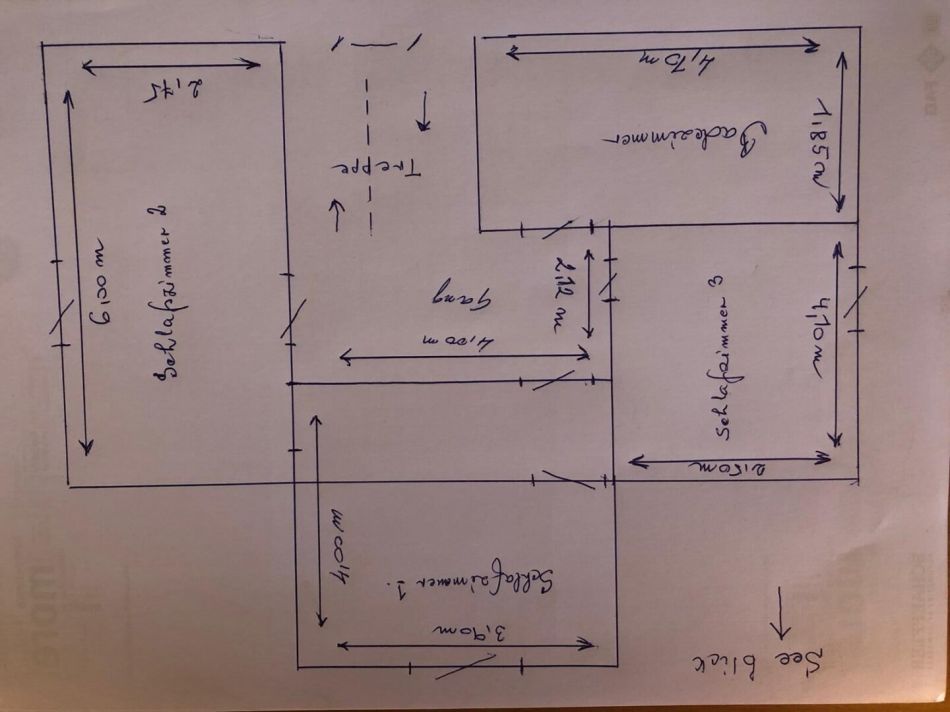 2,75
6,00 m
Schlafzimmer 2
Treppe
4,70 m
1,85 m
Badezimmer
2,12 m
Gang
4,00 m
Schlafzimmer 3
4,10 m
2,50 m
4,00 m
Schlafzimmer 1.
3,90 m
See blick